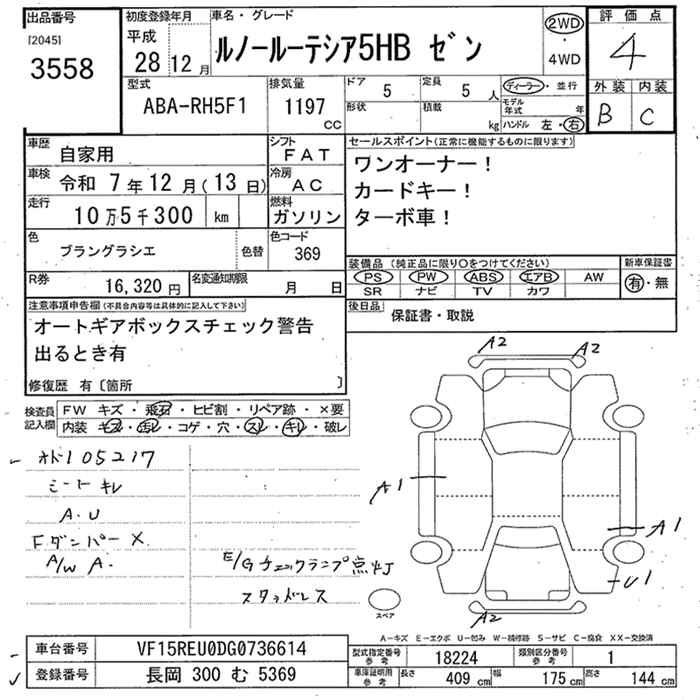 出品番号
[2045]
3558
初度登録年月
平成
28 12 月
車名・グレード
ルノールーテシア5HB ゼン
2WD
・
4WD
評価点
4
外装 内装
B C
型式
ABA-RH5F1
排気量
1197
CC
ドア
5
定員
5 人
形状
積載
kg
ディーラー・並行
モデル年式 年
ハンドル 左・右
車歴
自家用
シフト
FAT
車検
令和 7年12月(13日)
冷房
AC
走行
10万5千300 km
燃料
ガソリン
色
ブラングラシエ
色替
色コード
369
R券
16,320 円
名変通知期限
月 日
セールスポイント(正常に機能するものに限ります)
ワンオーナー!
カードキー!
ターボ車!
装備品 (純正品に限り〇をつけてください)
PS PW ABS エアB AW
SR ナビ TV カワ
新車保証書
有・無
後日品
保証書・取説
注意事項申告欄(不具合内容等は具体的に記入して下さい)
オートギアボックスチェック警告
出るとき有
修復歴 有〔箇所 〕
検査員記入欄
FW キズ・飛石・ヒビ割・リペア跡・×要
内装 キズ・汚レ・コゲ・穴・スレ・キレ・破レ
オド105217
シートキレ
A.U
Fダンパー×
A/W A.
E/Gチェックランプ点灯
スタッドレス
A2 A2
A1
A1
U1
A2
スペア
A-キズ E-エクボ U-凹み W-補修跡 S-サビ C-腐食 XX-交換済
車台番号
VF15REU0DG0736614
登録番号
長岡 300 む 5369
型式指定番号
参考
18224
類別区分番号
参考
1
車庫証明用
参考
長さ
409 cm
幅
175 cm
高さ
144 cm